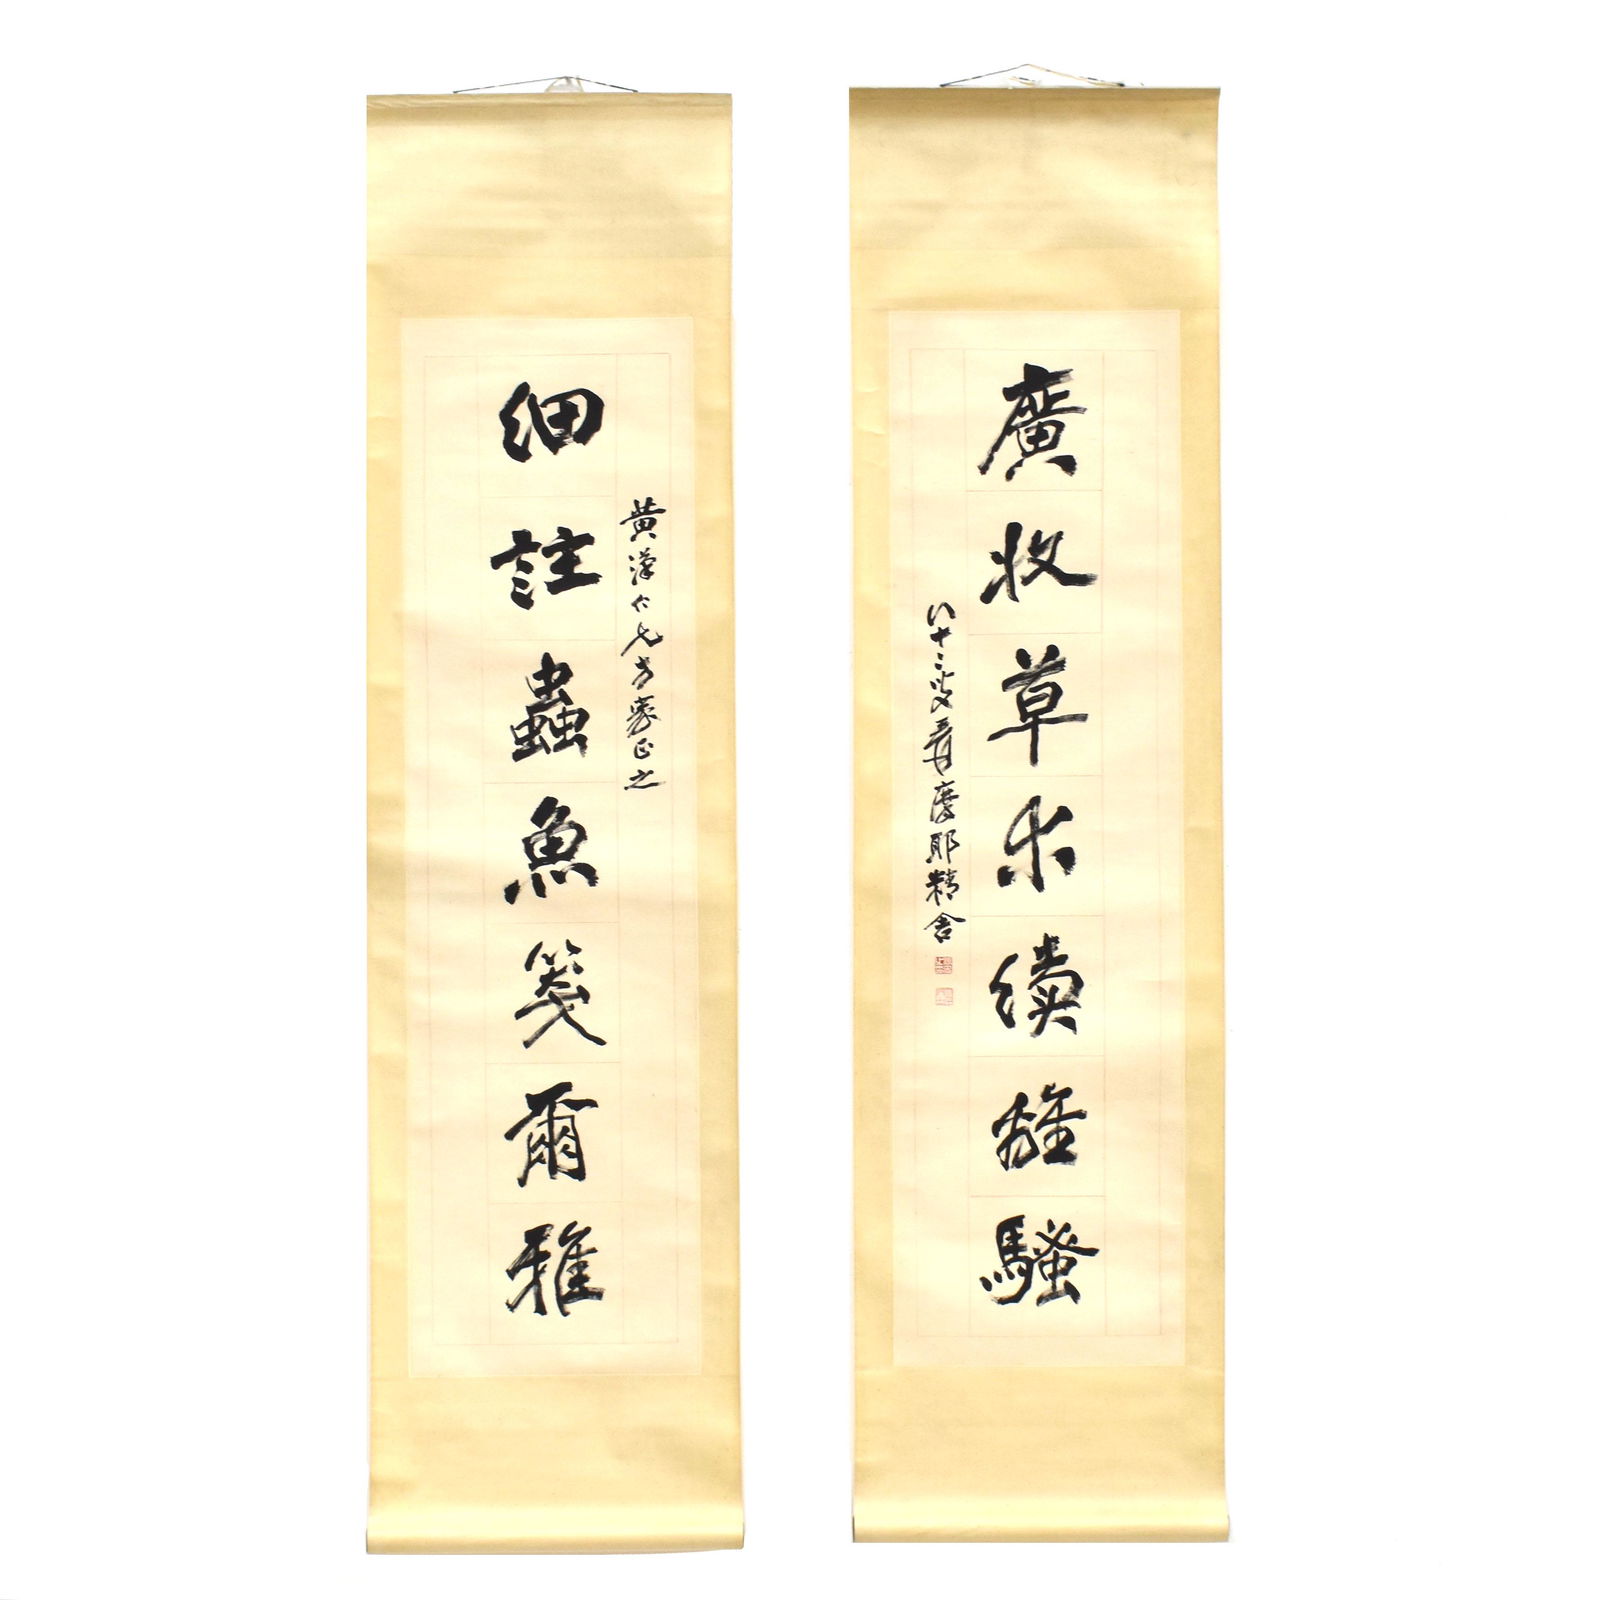 細註蟲魚箋爾雅
黃漢仁兄方家正之
廣收草木續離騷
八十二叟爰摩耶精舍